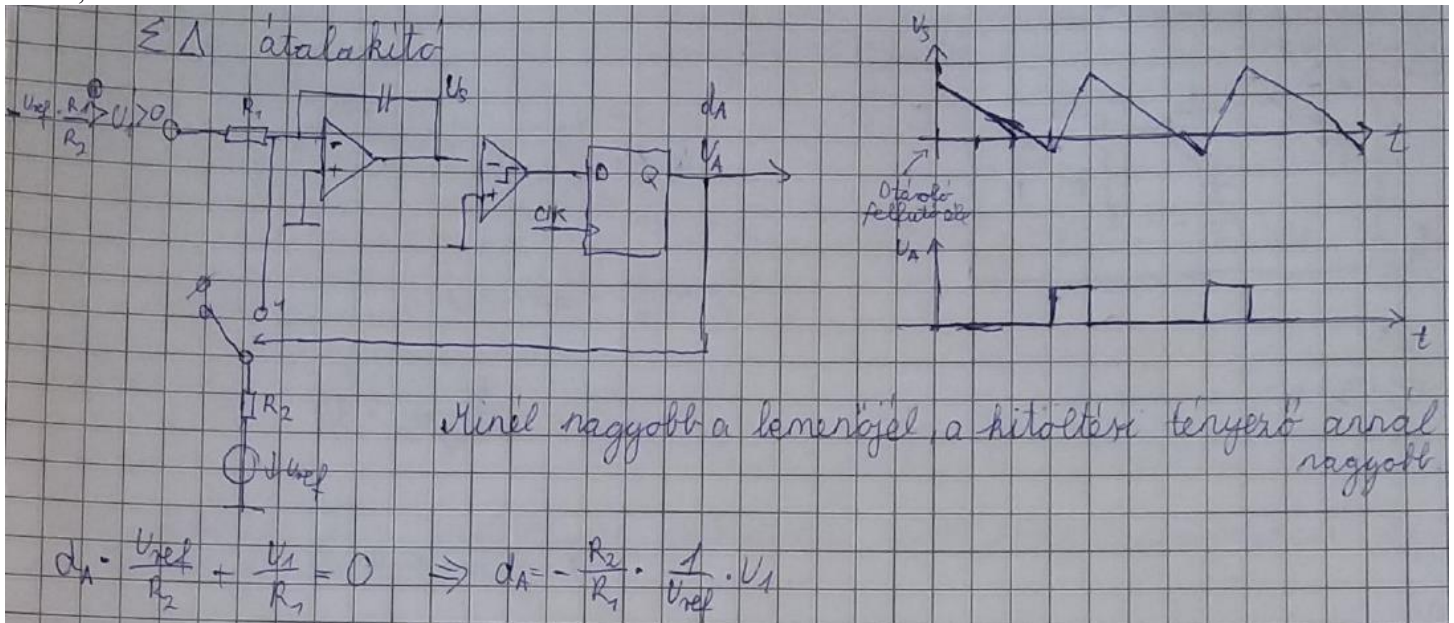 ΣΔ átalakító
-Uref · R1/R2 > U1 > 0
R1
US
dA
UA
D Q
clk
1
R2
Uref
US
t
D tároló
felfutó él
UA
t
Minél nagyobb a bemenőjel, a kitöltési tényező annál
nagyobb
dA · Uref/R2 + U1/R1 = 0 ⇒ dA = - R2/R1 · 1/Uref · U1